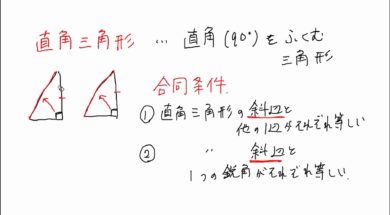 直角三角形 … 直角(90°)をふくむ
三角形
合同条件
① 直角三角形の斜辺と
他の1辺がそれぞれ等しい
② 〃 斜辺と
1つの鋭角がそれぞれ等しい